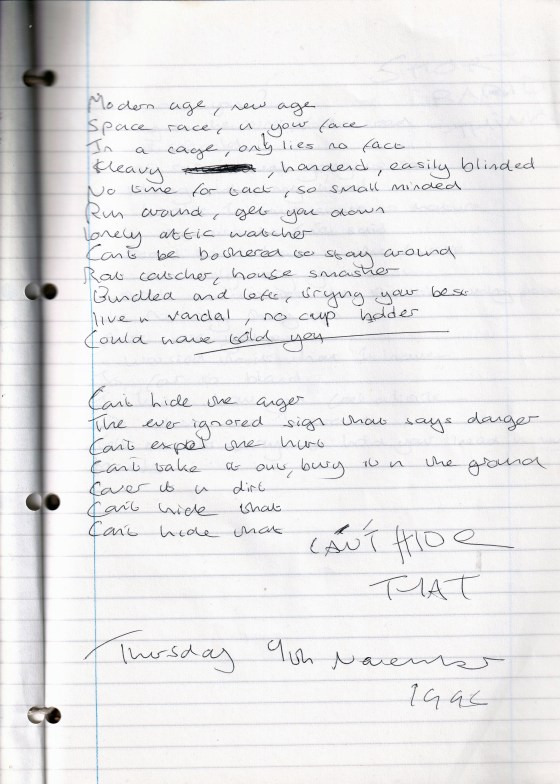 Modern age, new age
Space race, in your face
In a cage, only lies no fact
Heavy , handerd, easily blinded
No time for tact, so small minded
Run around, get you down
lonely attic watcher
Can't be bothered to stay around
Rat catcher, house smasher
Bundled and left, trying your best
live n vandal, no cup
Could have told you
Can't hide the anger
The ever ignored sign that says danger
Can't expel the hurt
Can't take it out, bury it in the ground
Cover it in dirt
Can't hide that
Can't hide that
CAN'T HIDE
THAT
Thursday 9th November